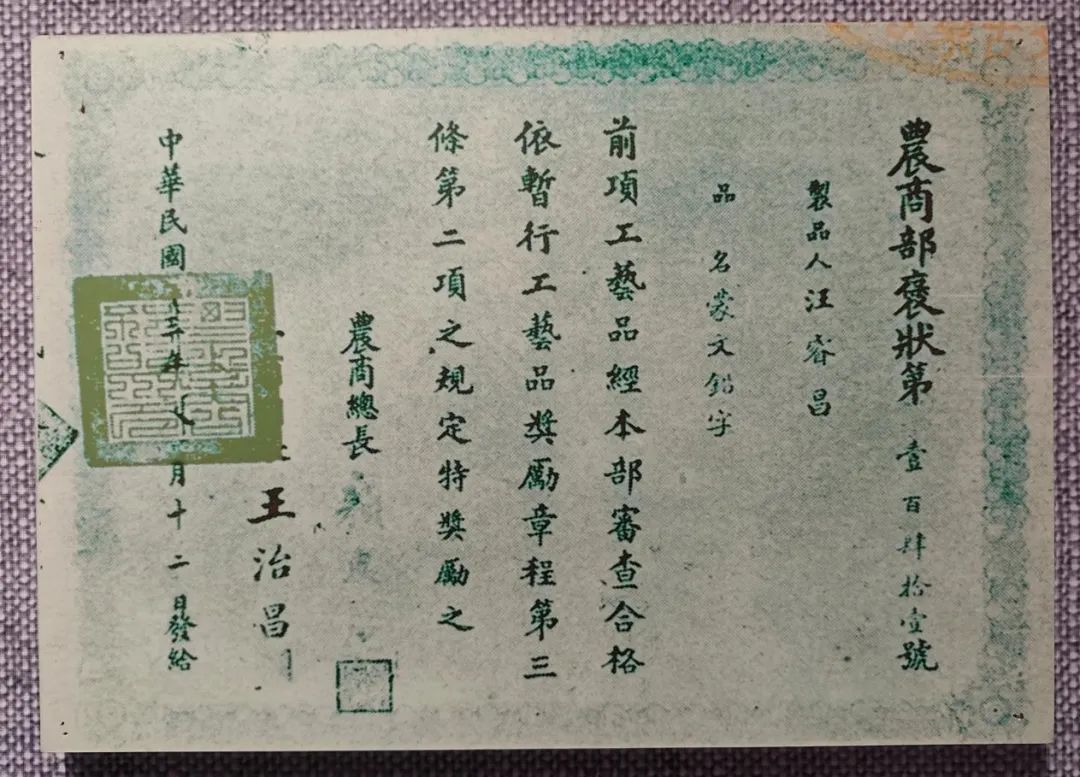 農商部褒狀第壹百肆拾壹號
製品人汪睿昌
品名蒙文鉛字
前項工藝品經本部審查合格
依暫行工藝品獎勵章程第三
條第二項之規定特獎勵之
農商總長
王治昌
中華民國 年 月十二日發給